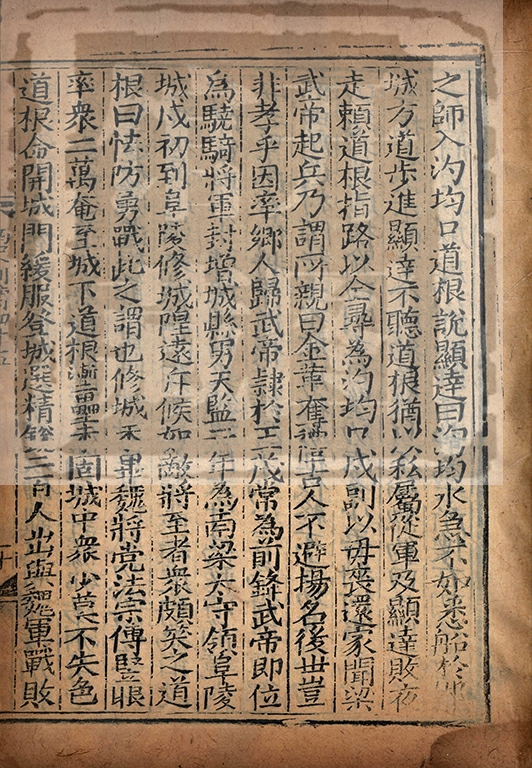 之師入汋均口道根說顯達曰汋均水急不如悉船於
城方道步進顯達不聽道根猶以私屬從軍及顯達敗夜
走賴道根指路以全尋為汋均口戍副以母喪還家聞梁
武帝起兵乃謂所親曰金革奪禮古人不避揚名後世豈
非孝乎因率鄉人歸武帝隷於王茂常為前鋒武帝即位
為驍騎將軍封增城縣男天監二年為南梁太守領阜陵
城戍初到阜陵修城隍遠斥候如敵將至者衆頗笑之道
根曰怯防勇戰此之謂也修城未畢魏將党法宗傅豎眼
率衆二萬奄至城下道根塹壘未固城中衆少莫不失色
道根命開城門緩服登城選精銳二百人出與魏軍戰敗